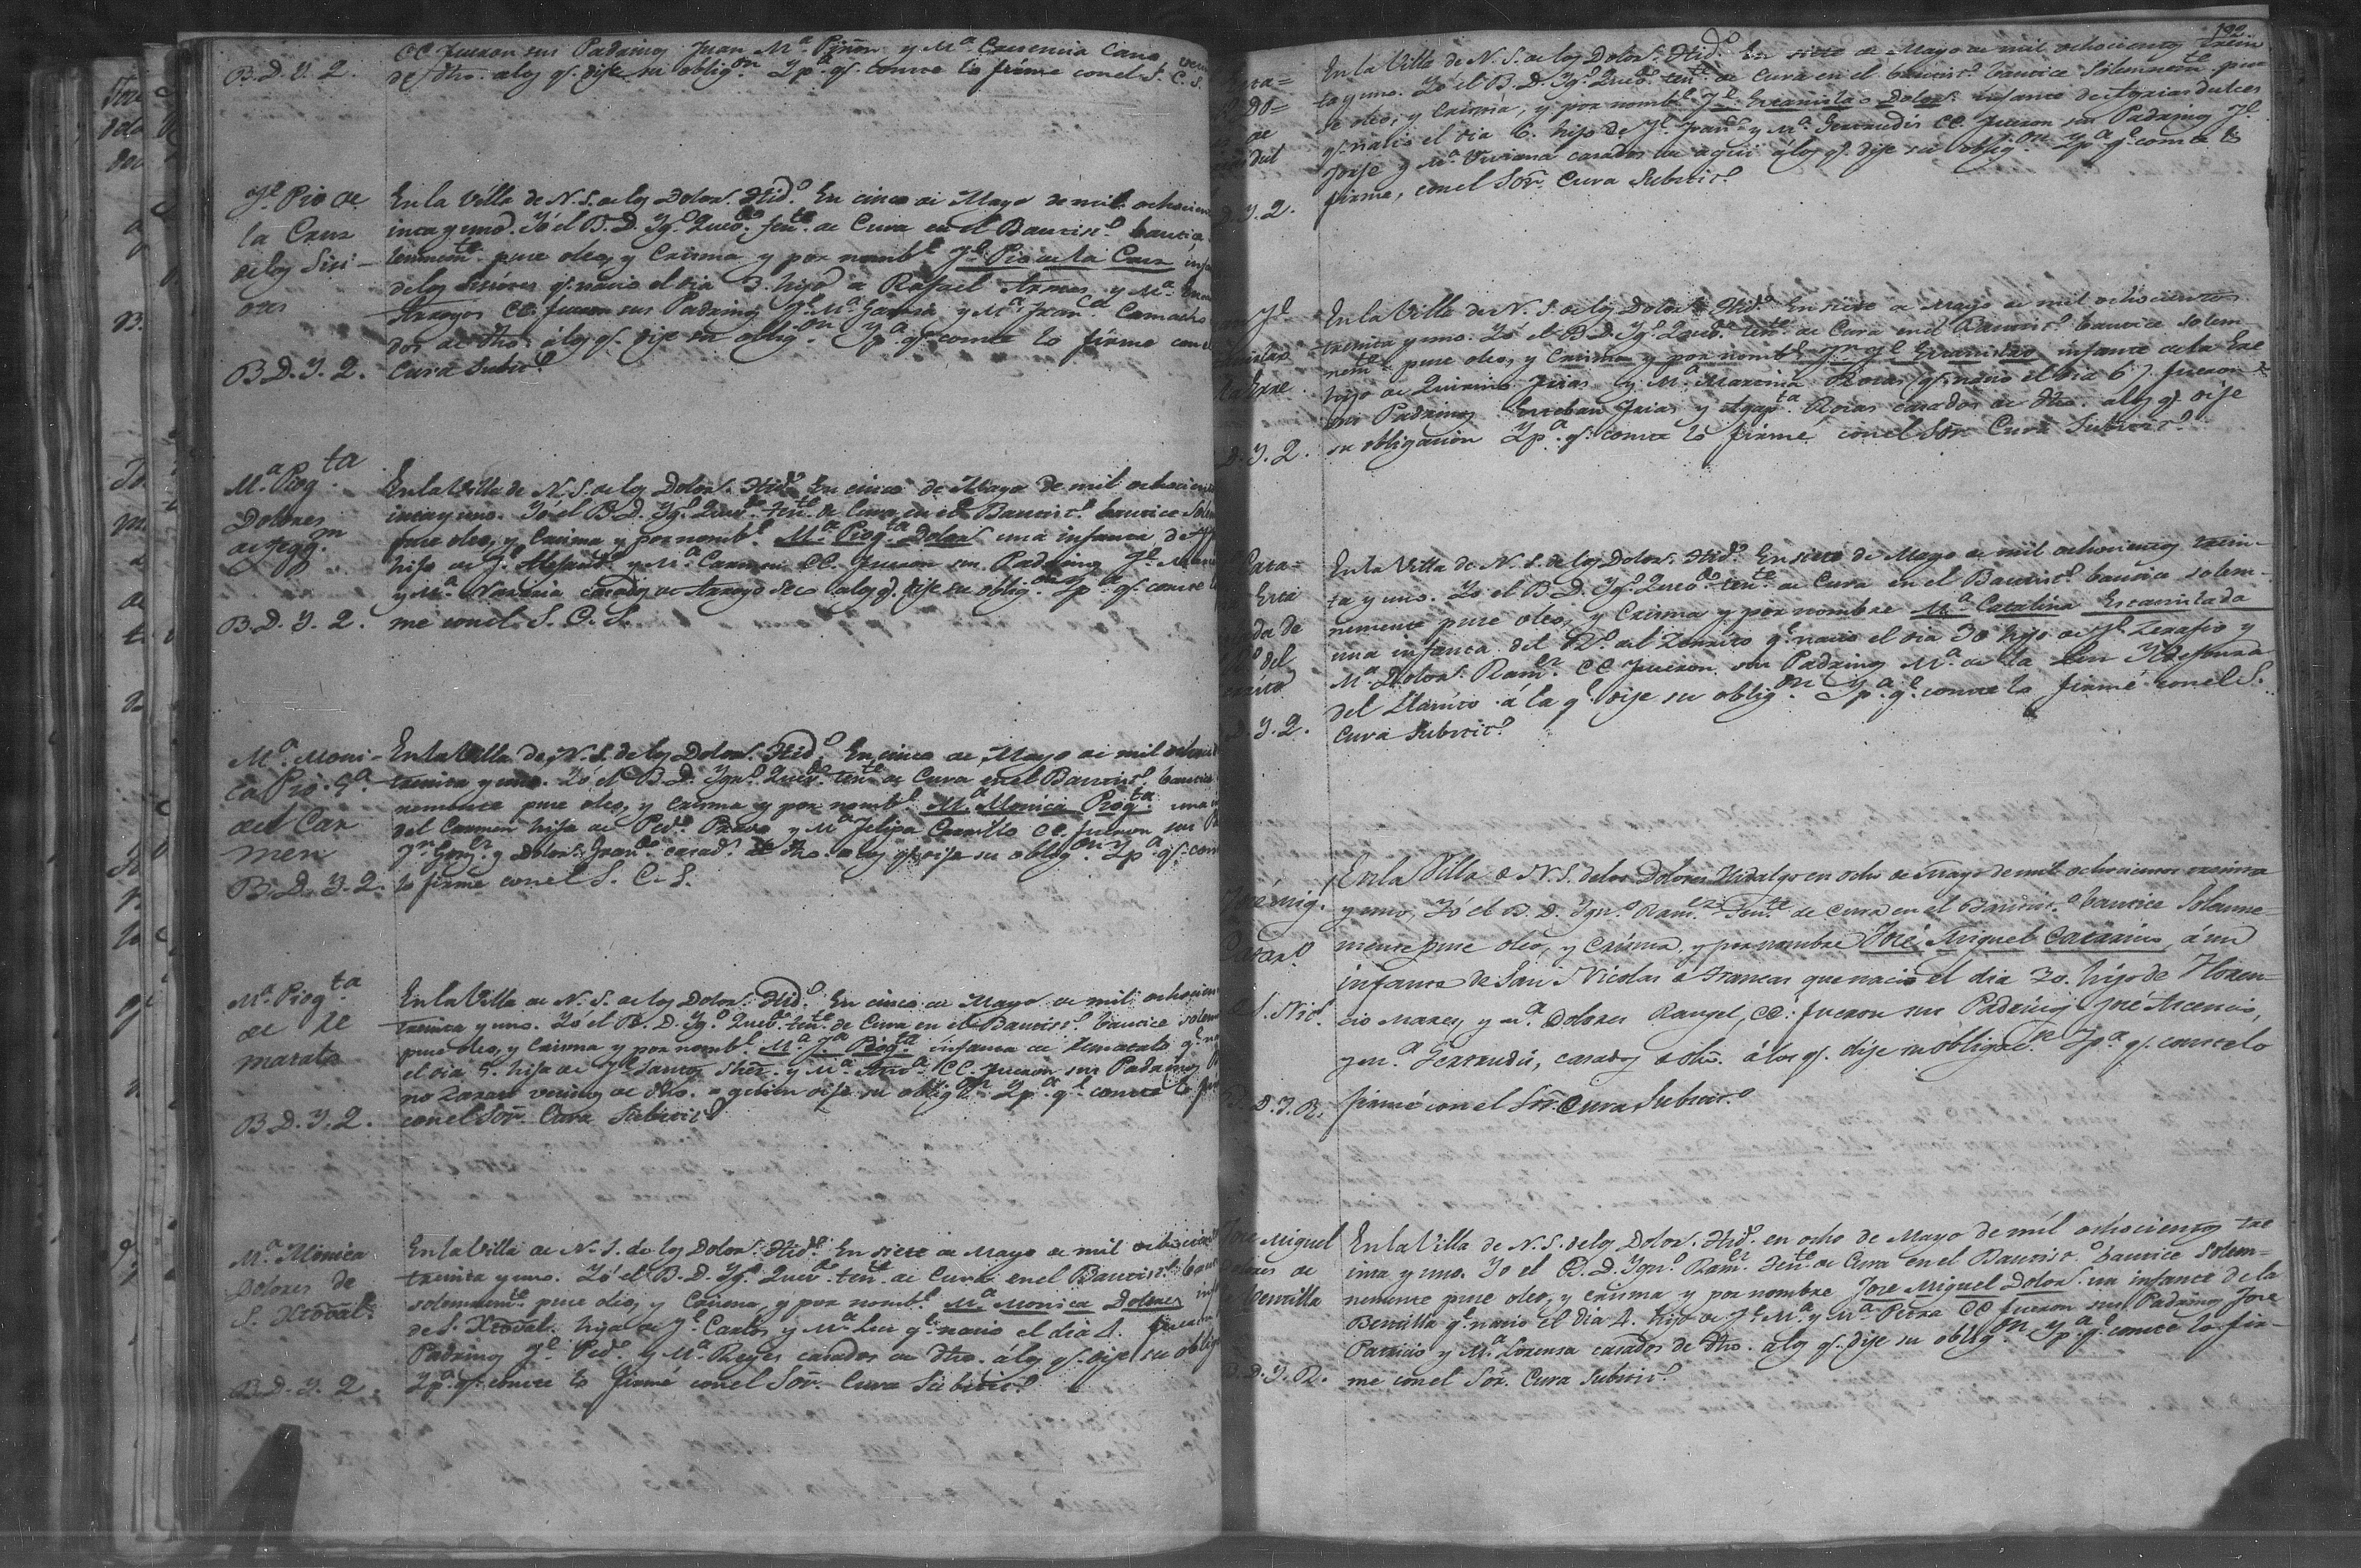 CC. fueron sus Padrinos Juan Ma. Piñon y Ma. Cresencia Cano
B. D. Y. Q.
de dho. a los qe. dije su obligon. Ypa. qe. conste lo firme con el S. C. S.
Je. Pio de
la Cruz
de los Sisi-
ones
B. D. Y. Q.
En la Villa de N. S. de los Dolors. Hido. En cinco de Mayo de mil ochocien
inta y uno. Yo el B. D. Ygo. Quebo. tente. de Cura en el Bautiso. bautice
lemnemte. puse oleo, y Crisma y por nombe. Je. Pio de la Cruz
de los sisiones qe. nacio el dia 3. hijo de Rafael Armas y Ma.
Arroyos CC. fueron sus Padrinos Je. Ma. Garcia y Ma. Franca. Camacho
dos de dho. á los qe. dije su obligon. Ypa. qe. conste lo firme con el
Cura Subtito.
Ma. Piogta.
Dolores
B. D. Y. Q.
En la Villa de N. S. de los Dolors. Hido. En cinco de Mayo de mil ochocien
inta y uno. Yo el B. D. Ygo. Quebo. tente. de Cura en el Bautiso. bautice Solem
puse oleo, y Crisma y por nombe. Ma. Piogta. Dolors. una infanta de
hija de Je. Alejando. y Ma. Carmen CC. fueron sus Padrinos Je.
y Ma. casados de Arroyo Seco a los qe. dije su obligon. Ypa. qe. conste
me con el S. C. S.
Ma. Moni-
ca Pio. Ga.
del Car
men
B. D. Y. Q.
En la Villa de N. S. de los Dolors. Hido. En cinco de Mayo de mil ochocien
treinta y uno. Yó el B. D. Ygno. Quebo. tente. de Cura en el Bautiso. bautice
nemente puse oleo, y Crisma y por nombe. Ma. Monica Piogta. una
del Carmen hija de Pedo. y Ma. Felipa Carrillo CC. fueron sus
Jn. Gonz. y Dolors. Franco. casads. de dho. a los qe. dije su obligon. Ypa. qe. con
lo firme con el S. C. S.
Ma. Piogta.
de Xe
marato
B. D. Y. Q.
En la Villa de N. S. de los Dolors. Hido. En cinco de Mayo de mil ochocien
treinta y uno. Yó el B. D. Ygo. Quebo. tente. de Cura en el Bautiso. bautice solem
puse oleo, y Crisma y por nombe. Ma. Ja. Piogta. infanta de Xemarato qe. na
el dia 5. hija de Je. Santos y Ma. CC. fueron sus Padrinos
no vecinos de dho. a quien dije su obligon. Ypa. qe. conste lo fir
con el Sor. Cura Subtito.
Ma. Monica
Dolores de
S. Xtoval.
B. D. Y. Q.
En la Villa de N. S. de los Dolors. Hido. En siete de Mayo de mil ochocien
treinta y uno. Yó el B. D. Ygo. Quebo. tente. de Cura en el Bautiso. bau
solemnemte. puse oleo, y Crisma, y por nombe. Ma. Monica Dolores inf
de S. Xtoval. hija de Je. Carlos y Ma. Luz qe. nacio el dia 4. fueron
Padrinos Je. Pedo. y Ma. Reyes casados de dho. á los qe. dije su oblig
Ypa. qe. conste lo firmé con el Sor. Cura Subtito.
192
En la Villa de N. S. de los Dolors. Hido. En siete de Mayo de mil ochocientos trein
ta y uno. Yó el B. D. Ygo. Quebo. tente. de Cura en el bautiso. bautice Solemnemte. puse
se oleo, y Crisma, y por nombe. Je. Estanislao Dolors. infante de
qe. nacio el dia 6. hijo de Je. Franco. y Ma. Gertrudis CC. fueron sus Padrinos Je.
y Ma. Viviana casados de aqui á los qe. dije su obligon. Ypa. qe. conste lo
firme, con el Sor. Cura Subtito.
D. Y. Q.
En la Villa de N. S. de los Dolors. Hido. En siete de Mayo de mil ochocientos
treinta y uno. Yó el B. D. Ygo. Quebo. tente. de Cura en el Bautiso. bautice solem
nemte. puse oleo, y Crisma y por nombe. Jn. Je. Estanislao infante de la
hijo de Quirino Frias y Ma. Martina Rosas (qe. nacio el dia 6) fueron
sus Padrinos Esteban Frias y Agapta. Rosas casados de dho. a los qe. dije
su obligacion Ypa. qe. conste lo firmé con el Sor. Cura Subtito.
D. Y. Q.
Cata=
da de
D. Y. Q.
En la Villa de N. S. de los Dolors. Hido. En siete de Mayo de mil ochocientos trein-
ta y uno. Yo el B. D. Ygo. Quebo. tente. de Cura en el Bautiso. bautice solem-
nemente puse oleo, y Crisma y por nombre Ma. Catalina Estanislada
una infanta del Ro. del qe. nacio el dia 30 hija de Je. Zerafio y
Ma. Dolors. Ramz. CC fueron sus Padrinos Ma. de la Luz Yldefonsa
del Llanito á la qe. dije su obligon. Ypa. qe. conste lo firmé con el S.
Cura Subtito.
José Mig.
Catarno.
S. Nic.
D. Y. R.
En la Villa de N. S. de los Dolores Hidalgo en ocho de Mayo de mil ochocientos treinta
y uno, Yó el B. D. Ygno. Ramz. Tente. de Cura en el Bautiso. bautice Solemne-
mente puse oleo, y Crisma, y por nombre José Miguel Catarino, á un
infante de San Nicolas que nacio el dia 30. hijo de Floren-
cio Mares, y Ma. Dolores Rangel, CC. fueron sus Padrinos José Ascencio,
y Ma. Gertrudis, casados de dho. á los qe. dije su obligacn. Ypa. qe. conste lo
firmé con el Sor. Cura Subtito.
José Miguel
Dolores de
Ventilla
D. Y. R.
En la Villa de N. S. de los Dolors. Hido. en ocho de Mayo de mil ochocientos tre
inta y uno. Yo el B. D. Ygno. Ramz. Tente. de Cura en el Bautiso. bautice solem=
nemente puse oleo, y crisma y por nombre Jose Miguel Dolors. un infante de la
Bentilla qe. nacio el dia 4. hijo de Je. Ma. y Ma. Petra CC fueron sus Padrinos Jose
Patricio y Ma. Lorensa casados de dho. a los qe. dije su obligon. Ypa. qe. conste lo fir-
me con el Sor. Cura Subtito.